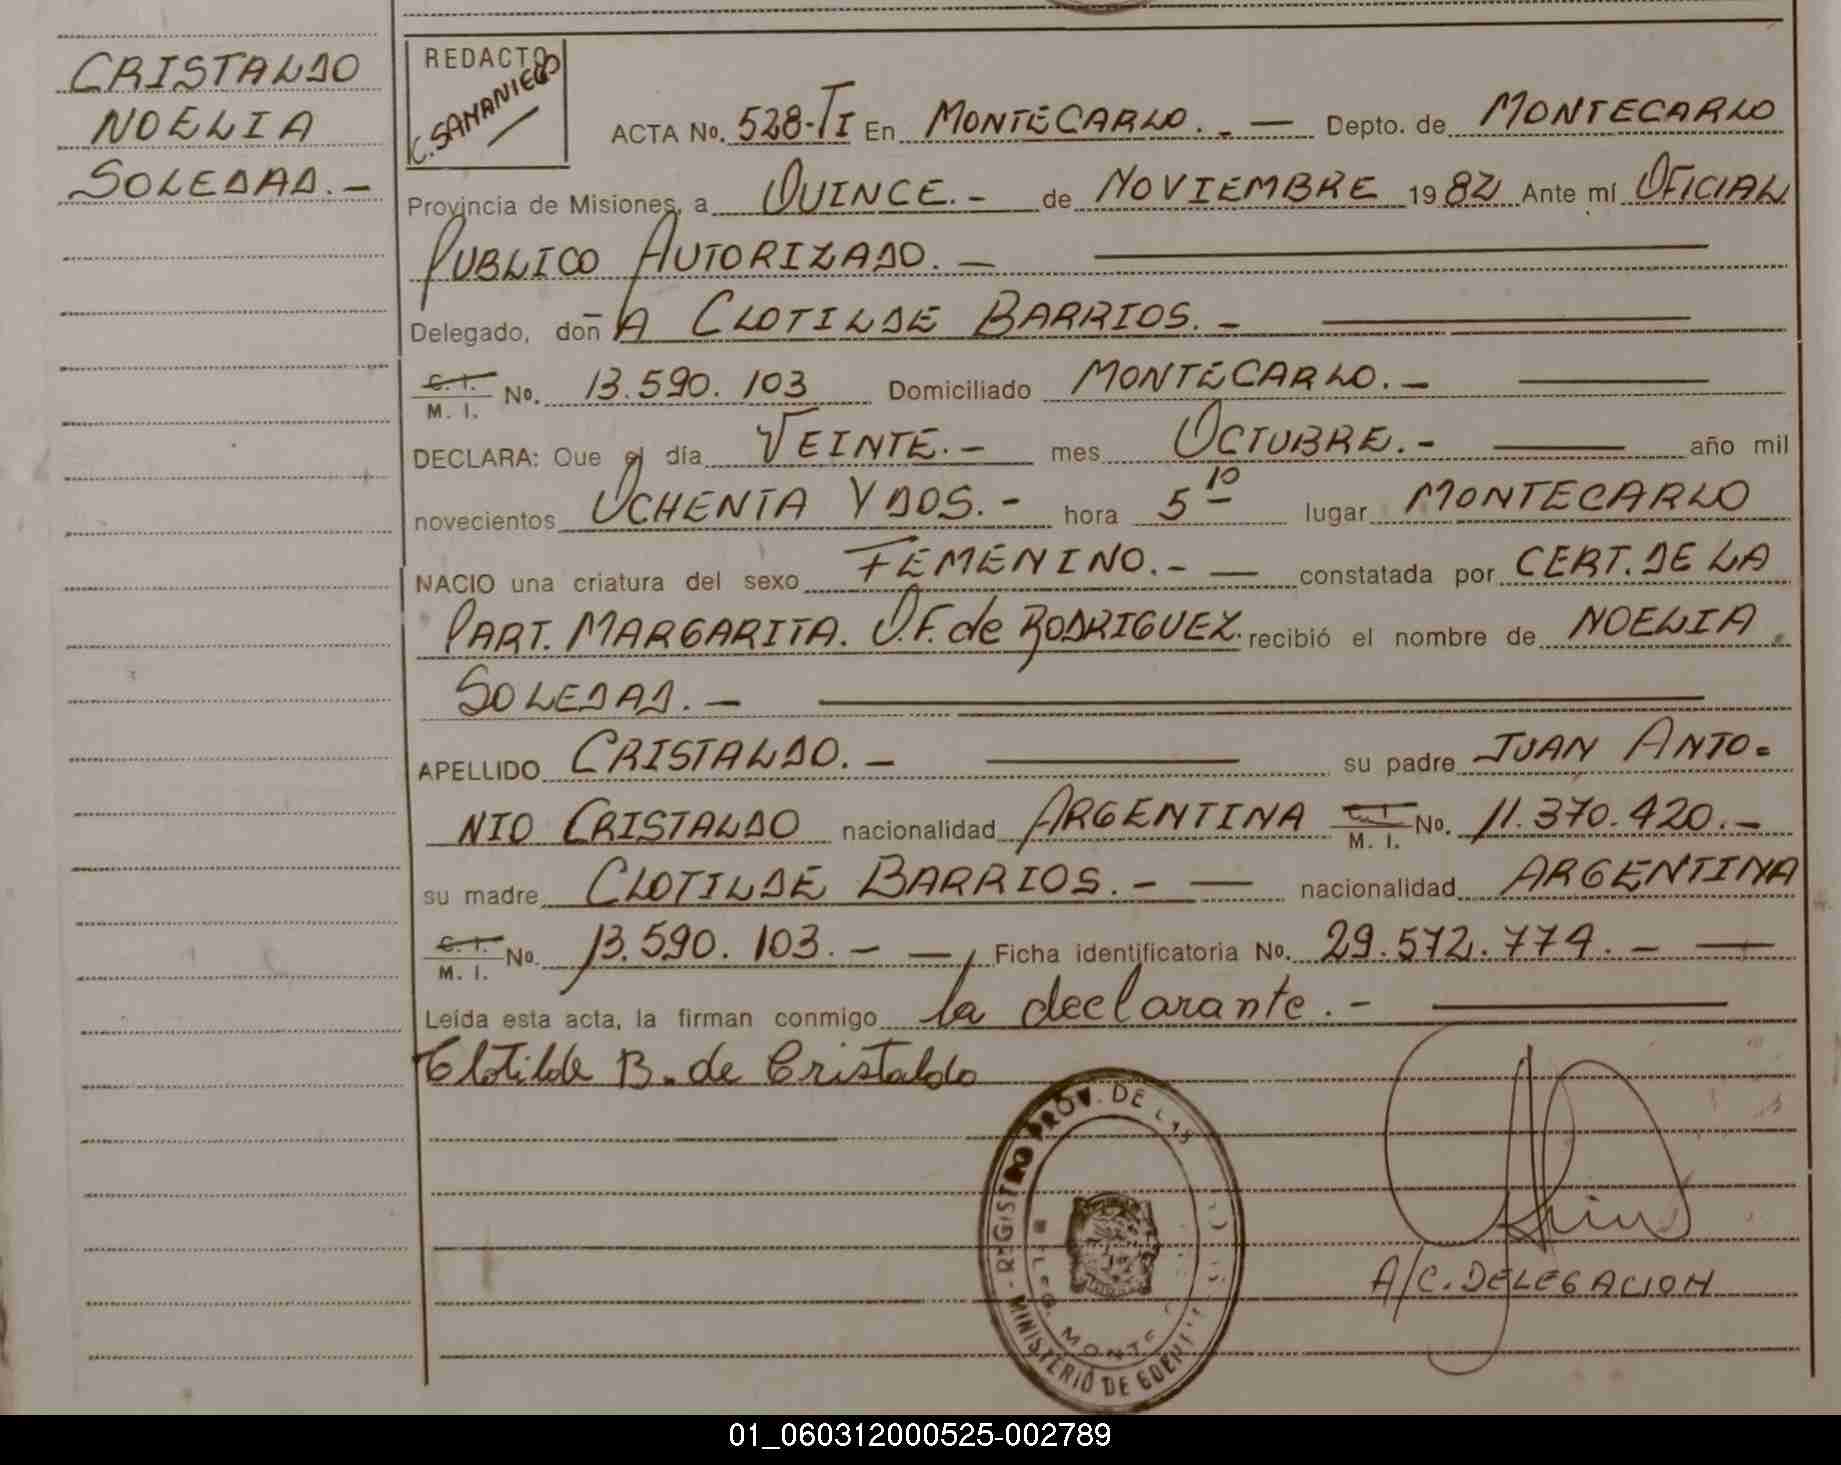 CRISTALDO
NOELIA
SOLEDAD.-
REDACTO
C. SAMANIEGO
ACTA No. 528-TI En MONTECARLO.- — Depto. de MONTECARLO
Provincia de Misiones, a QUINCE.- de NOVIEMBRE 1982 Ante mí OFICIAL
PUBLICO AUTORIZADO.-
Delegado, don A CLOTILDE BARRIOS.-
C. I. M. I. No. 13.590.103 Domiciliado MONTECARLO.-
DECLARA: Que el día VEINTE.- mes OCTUBRE.- año mil
novecientos OCHENTA Y DOS.- hora 5 10 lugar MONTECARLO
NACIO una criatura del sexo FEMENINO.- — constatada por CERT. DE LA
PART. MARGARITA. O.F. de RODRIGUEZ. recibió el nombre de NOELIA
SOLEDAD.-
APELLIDO CRISTALDO.- su padre JUAN ANTO=
NIO CRISTALDO nacionalidad ARGENTINA C. I. M. I. No. 11.370.420.-
su madre CLOTILDE BARRIOS.- — nacionalidad ARGENTINA
C. I. M. I. No. 13.590.103.- — Ficha identificatoria No. 29.572.774.- —
Leída esta acta, la firman conmigo la declarante.-
Clotilde B. de Cristaldo
REGISTRO PROV. DE LAS
MINISTERIO DE GOB
A/C. DELEGACION
01_060312000525-002789